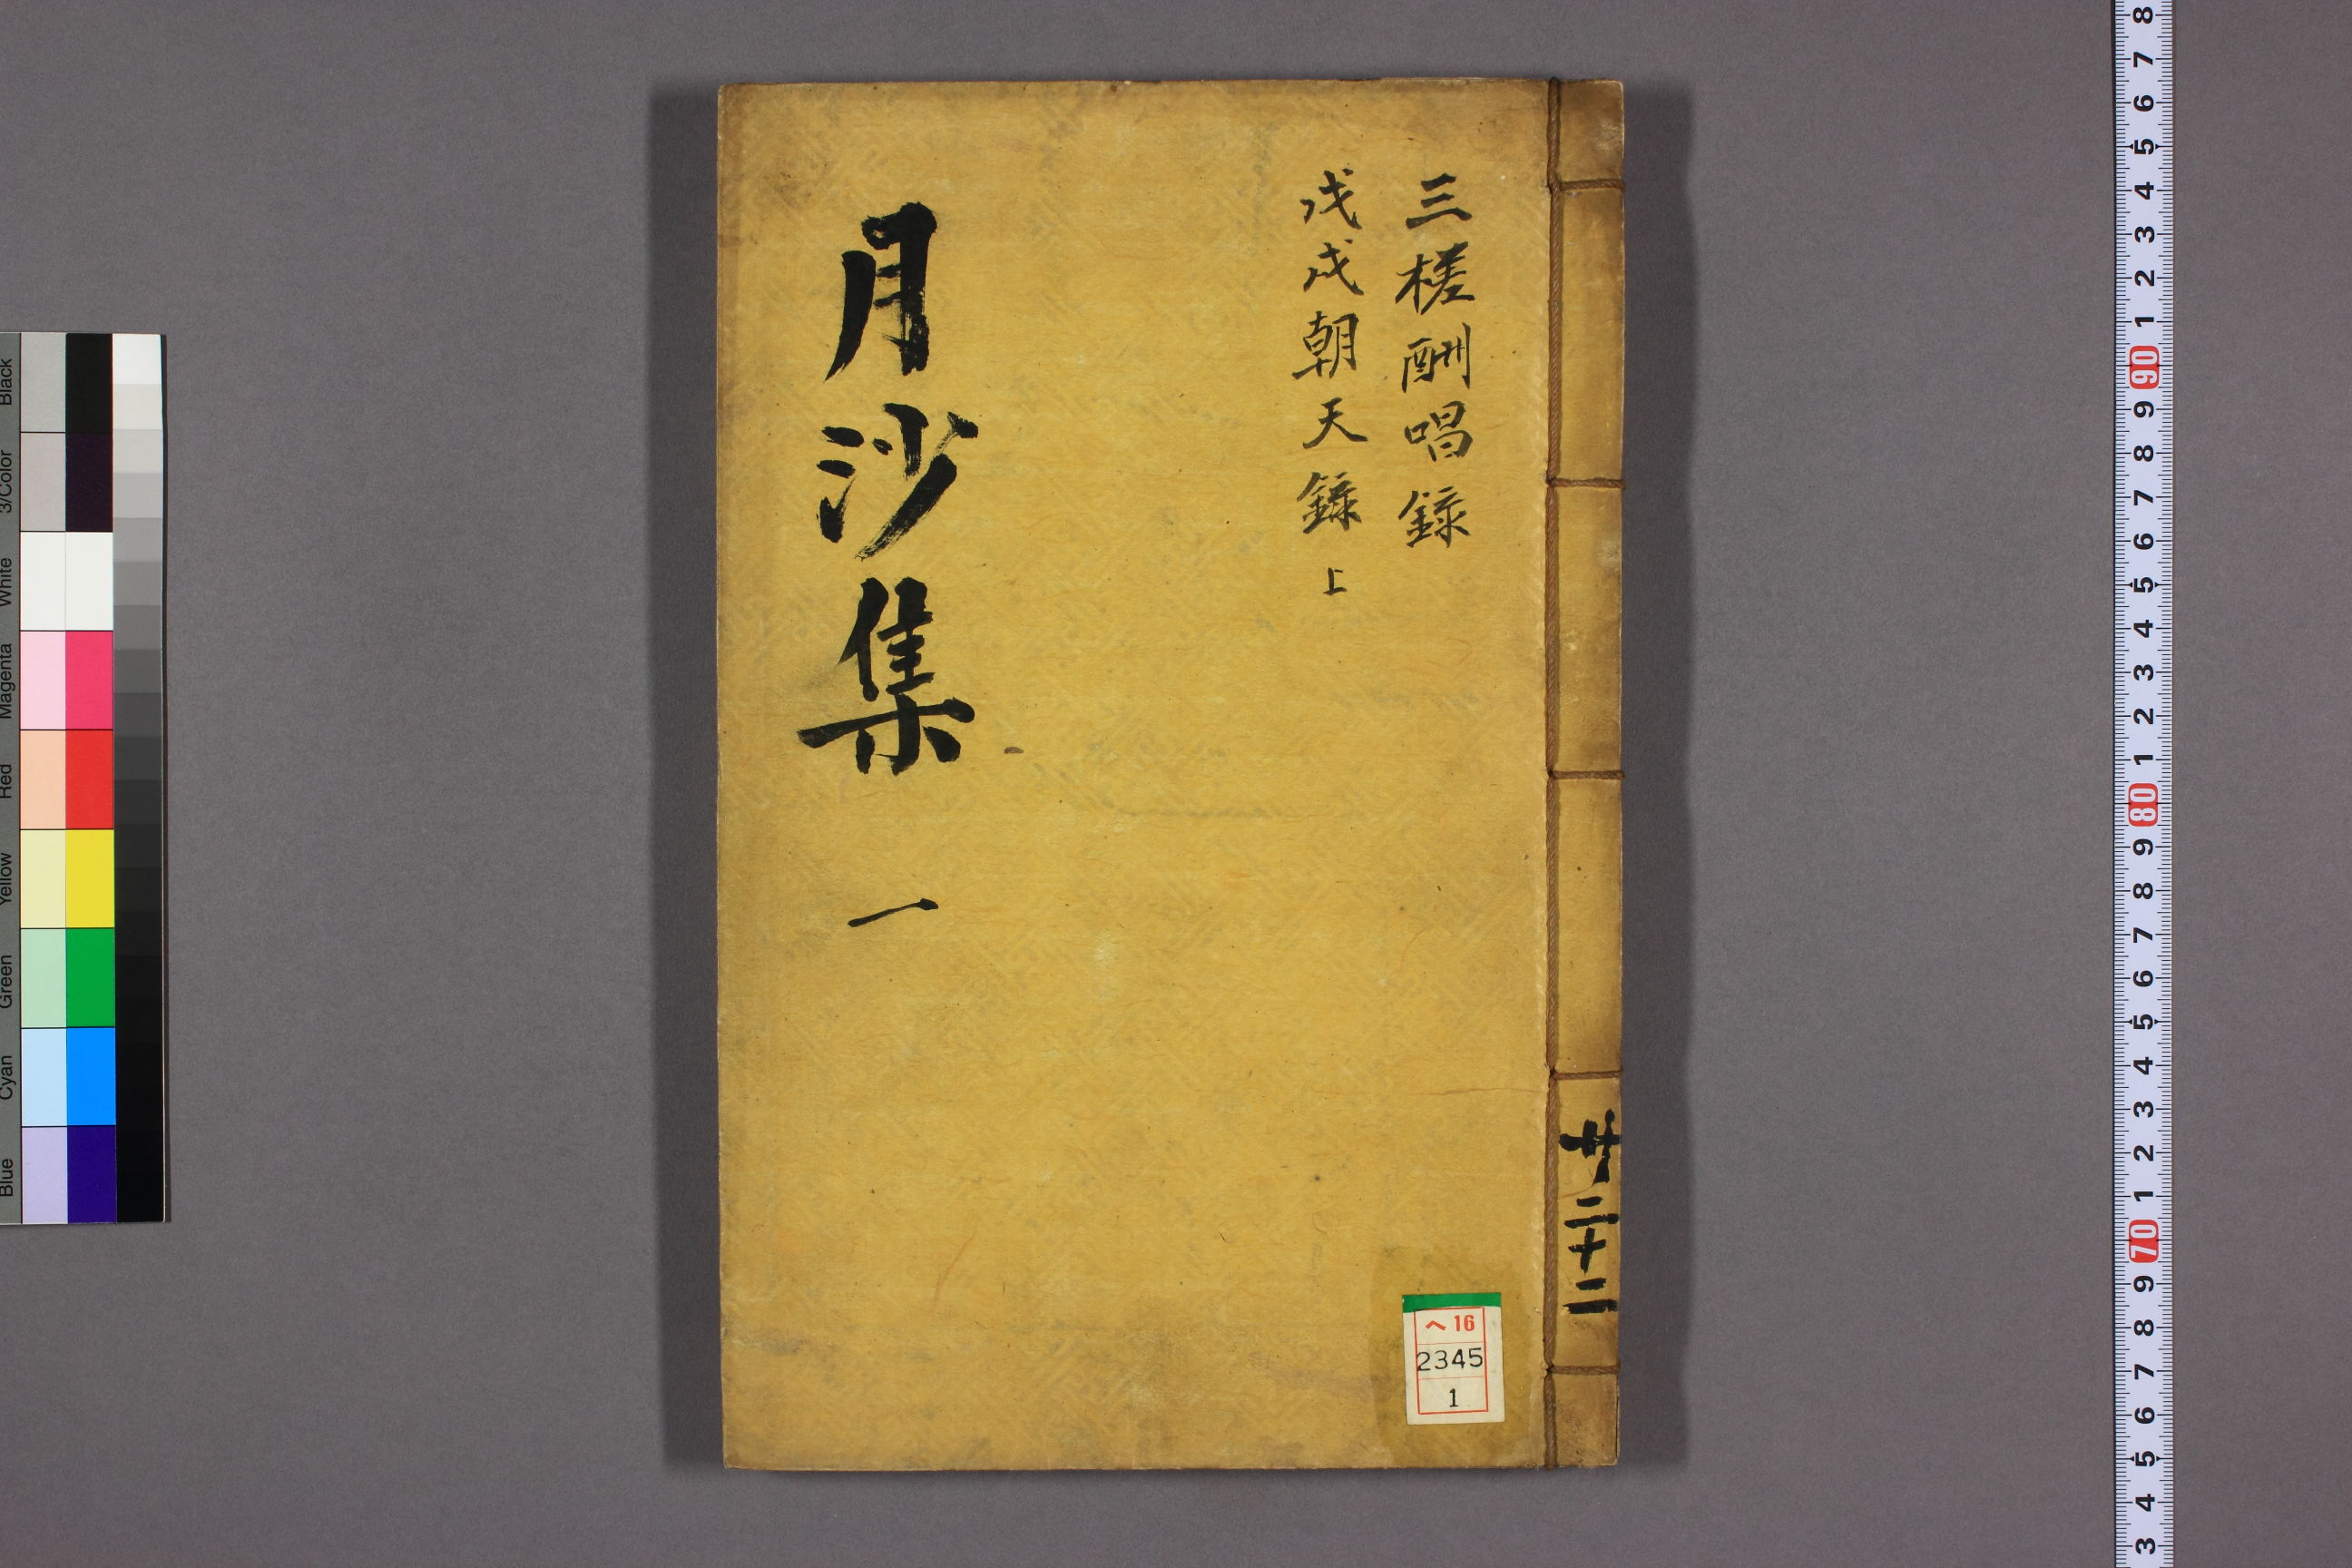 三槎酬唱錄
戊戌朝天錄 上
月沙集 一
共二十二
ヘ 16
2345
1
Black
3/Color
White
Magenta
Red
Yellow
Green
Cyan
Blue
8
7
6
5
4
3
2
1
90
9
8
7
6
5
4
3
2
1
80
9
8
7
6
5
4
3
2
1
70
9
8
7
6
5
4
3